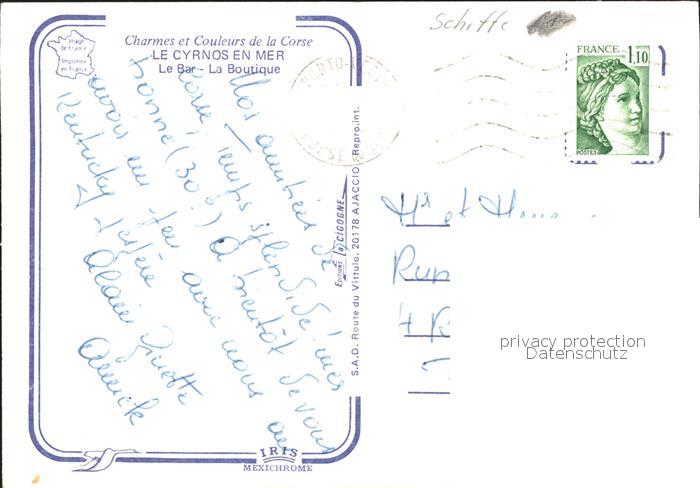 Schiffe
Image
de France
Imprimé
en France
Charmes et Couleurs de la Corse
LE CYRNOS EN MER
Le Bar - La Boutique
Nos amitiés de
Corse. Temps splendide! mer
bonne (30°) A bientôt de vous
avoir au
avec nous au
Kentucky j'espère
Alain Ginette
Annick
Editions la CIGOGNE
S.A.D. Route du Vittulo. 20178 AJACCIO Repro.int.
IRIS
MEXICHROME
PORTO-
CORSE
FRANCE 1,10
POSTES
Mr et
privacy protection
Datenschutz